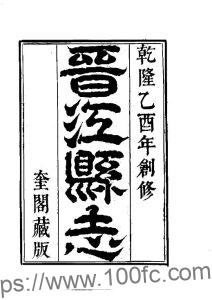 乾隆乙酉年創修
晉江縣志
奎閣藏版
ps://www.100fc.com